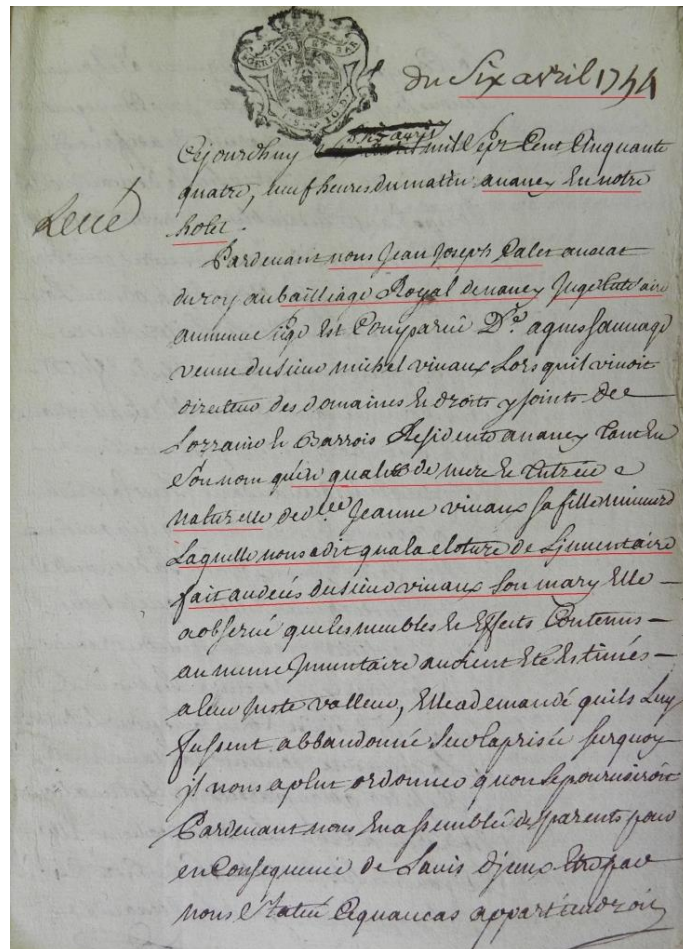 LORRAINE ET BAR
du Six avril 1754
Cejourdhuy six avril mil Sept Cent Cinquante
quatre, neuf heures du matin anancy En notre
hotel.
René
Pardevant nous Jean Joseph Palet avocat
du roy au bailliage Royal denancy Juge tutelaire
aumeme siege Est Comparüe D.e agnes Sauvage
veuve dusieur michel vivaux Lors quil vivoit
directeur des domaines Et droits y joints de
Lorraine Et Barrois Residente anancy tant En
Son nom qu'En qualité de mere Et tutrice
naturelle de d.lle Jeanne vivaux sa fille mineure
Laquelle nous adit qua la cloture de Linventaire
fait audeces dusieur vivaux Son mary Elle
aobservé que les meubles Et Effets Contenus
au meme Inventaire avoient Eté Estimés
aleur Juste valleur, Elle ademandé quils Luy
fussent abbandonné Sur laprisée surquoy
jl nous aplut ordonner quon Se pourvoiroit
Pardevant nous En assemblée de parents pour
en Consequence de Lavis djceux Etre par
nous Statué Cequaucas appartiendroit